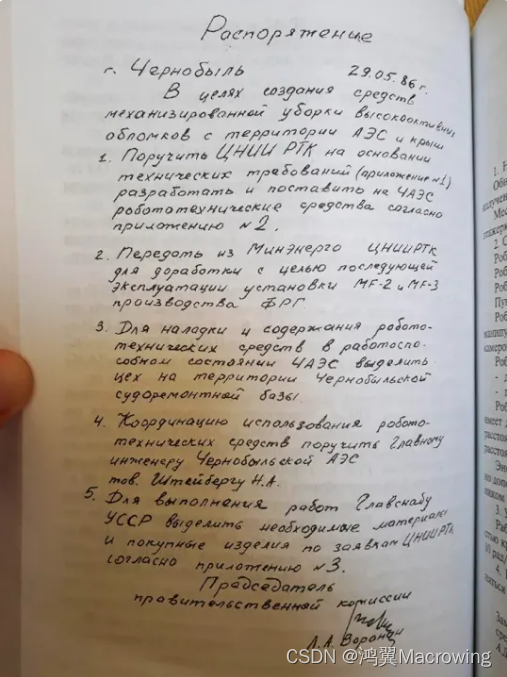 Распоряжение
г. Чернобыль 29.05.86 г.
В целях создания средств
механизированной уборки высокоактивн
обломков с территории АЭС и крыш
1. Поручить ЦНИИ РТК на основании
технических требований (приложение №1)
разработать и поставить на ЧАЭС
робототехнические средства согласно
приложению №2.
2. Передать из Минэнерго ЦНИИРТК
для доработки с целью последующей
эксплуатации установки MF-2 и MF-3
производства ФРГ.
3. Для наладки и содержания робото-
технических средств в работоспо-
собном состоянии ЧАЭС выделить
цех на территории Чернобыльской
судоремонтной базы.
4. Координацию использования робото-
технических средств поручить Главному
инженеру Чернобыльской АЭС
тов. Штейнбергу Н.А.
5. Для выполнения работ Главснабу
УССР выделить необходимые материалы
и покупные изделия по заявкам ЦНИИРТК
согласно приложению №3.
Председатель
правительственной комиссии
Л.А. Воронин
CSDN @鸿翼Macrowing